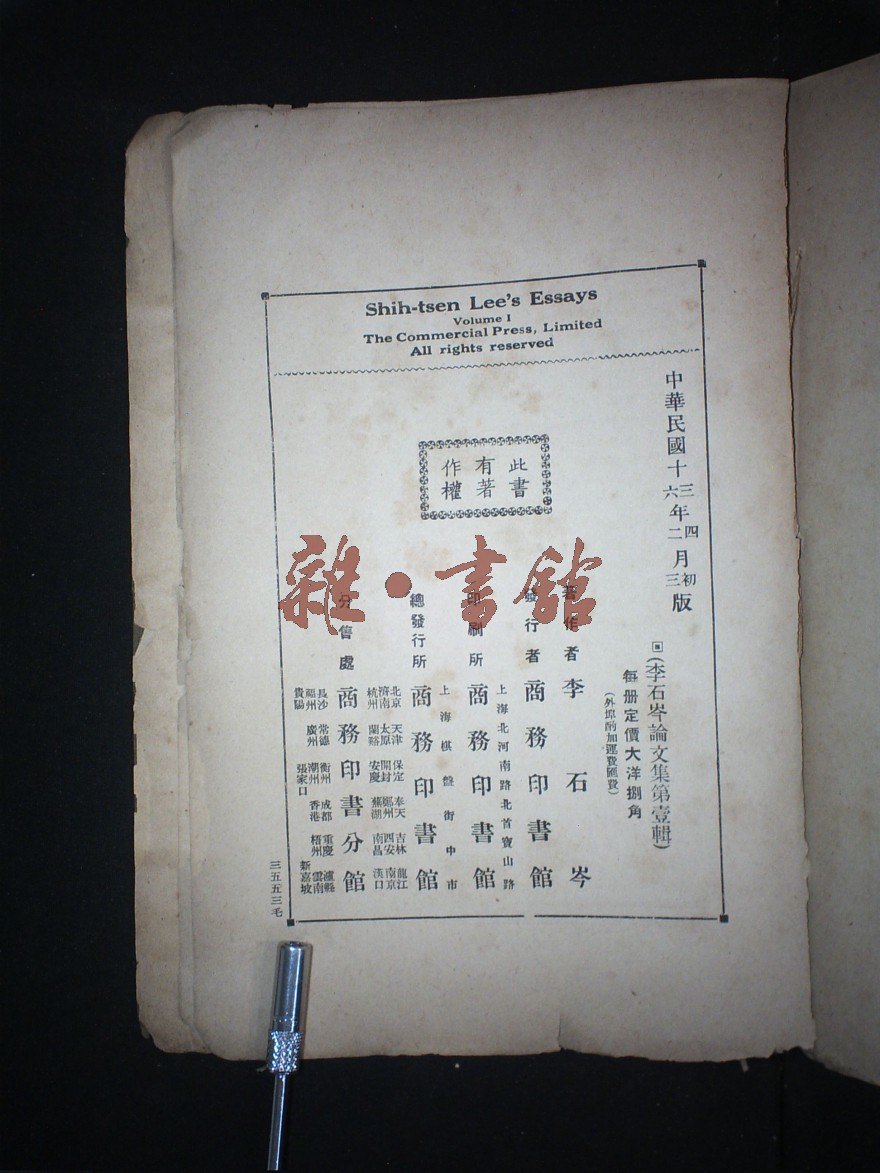 Shih-tsen Lee's Essays
Volume 1
The Commercial Press, Limited
All rights reserved
中華民國十三年四月初版
六二三
此書
有著
作權
(李石岑論文集第壹輯)
每册定價大洋捌角
(外埠酌加運費匯費)
著作者 李石岑
發行者 商務印書館
上海北河南路北首寶山路
印刷所 商務印書館
上海棋盤街中市
總發行所 商務印書館
北京 天津 保定 奉天 吉林 龍江
濟南 太原 開封 鄭州 西安 南京
杭州 蘭谿 安慶 蕪湖 南昌 漢口
分售處 商務印書分館
長沙 常德 衡州 成都 重慶 瀘縣
福州 廣州 潮州 香港 梧州 雲南
貴陽 張家口 新嘉坡
三五五三毛
雜·書館